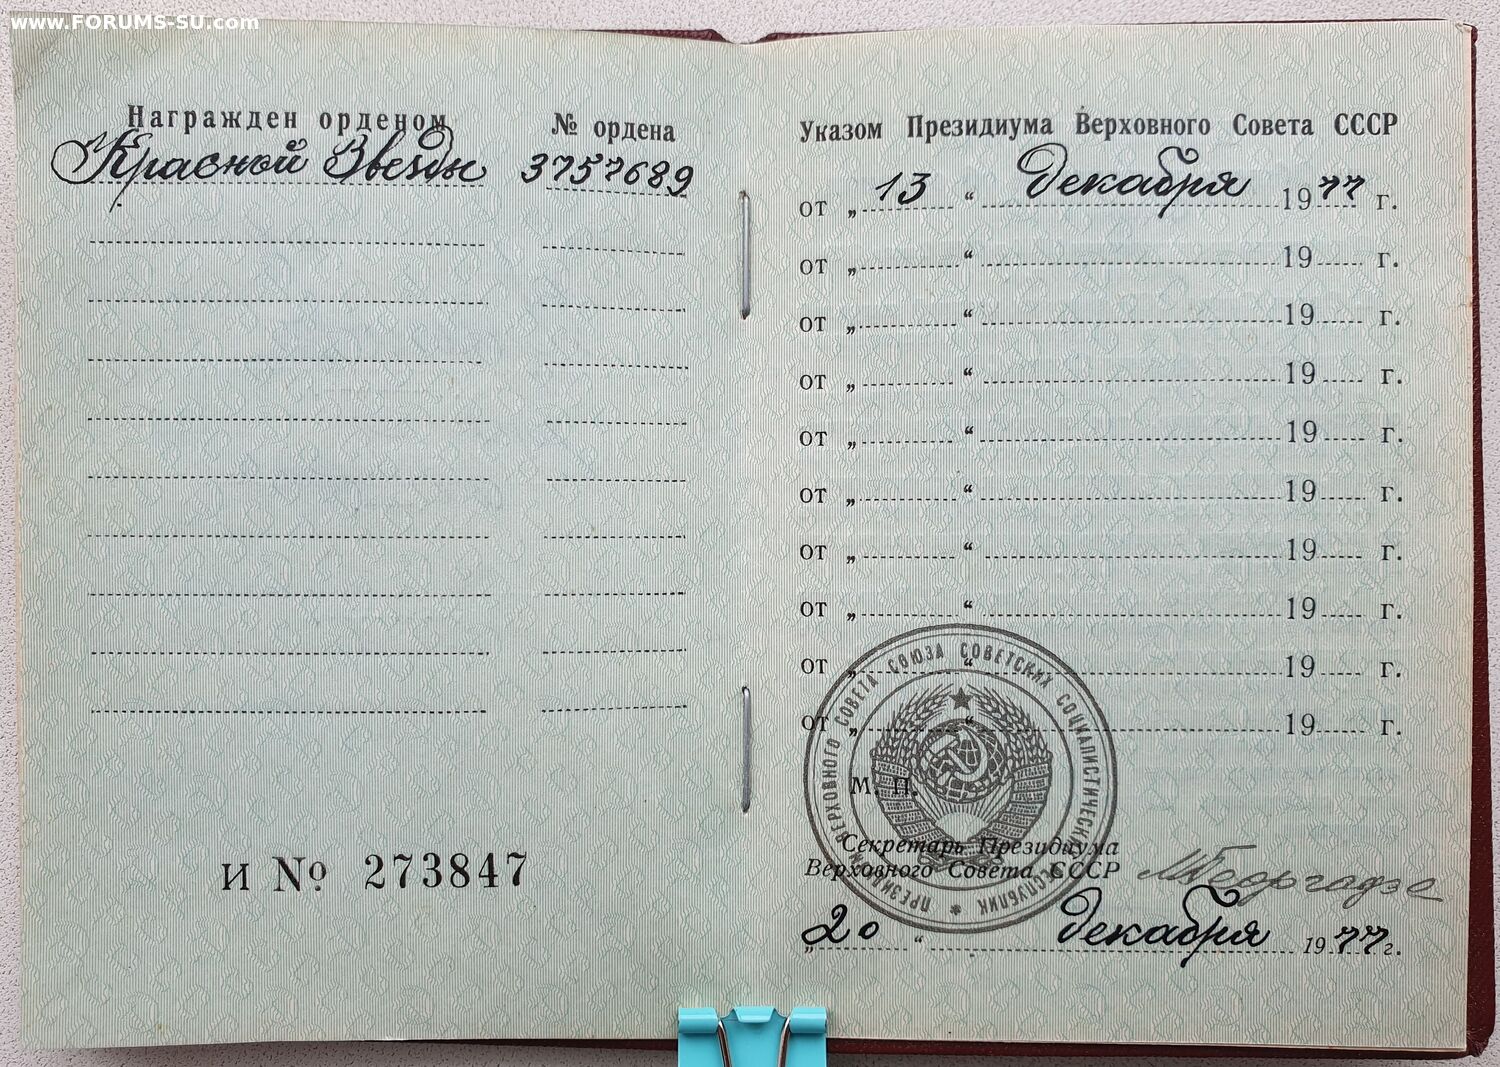 www.FORUMS-SU.com
Награжден орденом
№ ордена
Красной Звезды
3757689
И № 273847
Указом Президиума Верховного Совета СССР
от „ 13 “ декабря 1977 г.
от „ “ 19 г.
от „ “ 19 г.
от „ “ 19 г.
от „ “ 19 г.
от „ “ 19 г.
от „ “ 19 г.
от „ “ 19 г.
от „ “ 19 г.
от „ “ 19 г.
ПРЕЗИДИУМ ВЕРХОВНОГО СОВЕТА СОЮЗА СОВЕТСКИХ СОЦИАЛИСТИЧЕСКИХ РЕСПУБЛИК
М. П.
Секретарь Президиума
Верховного Совета СССР
МГеоргадзе
„ 20 “ декабря 1977 г.